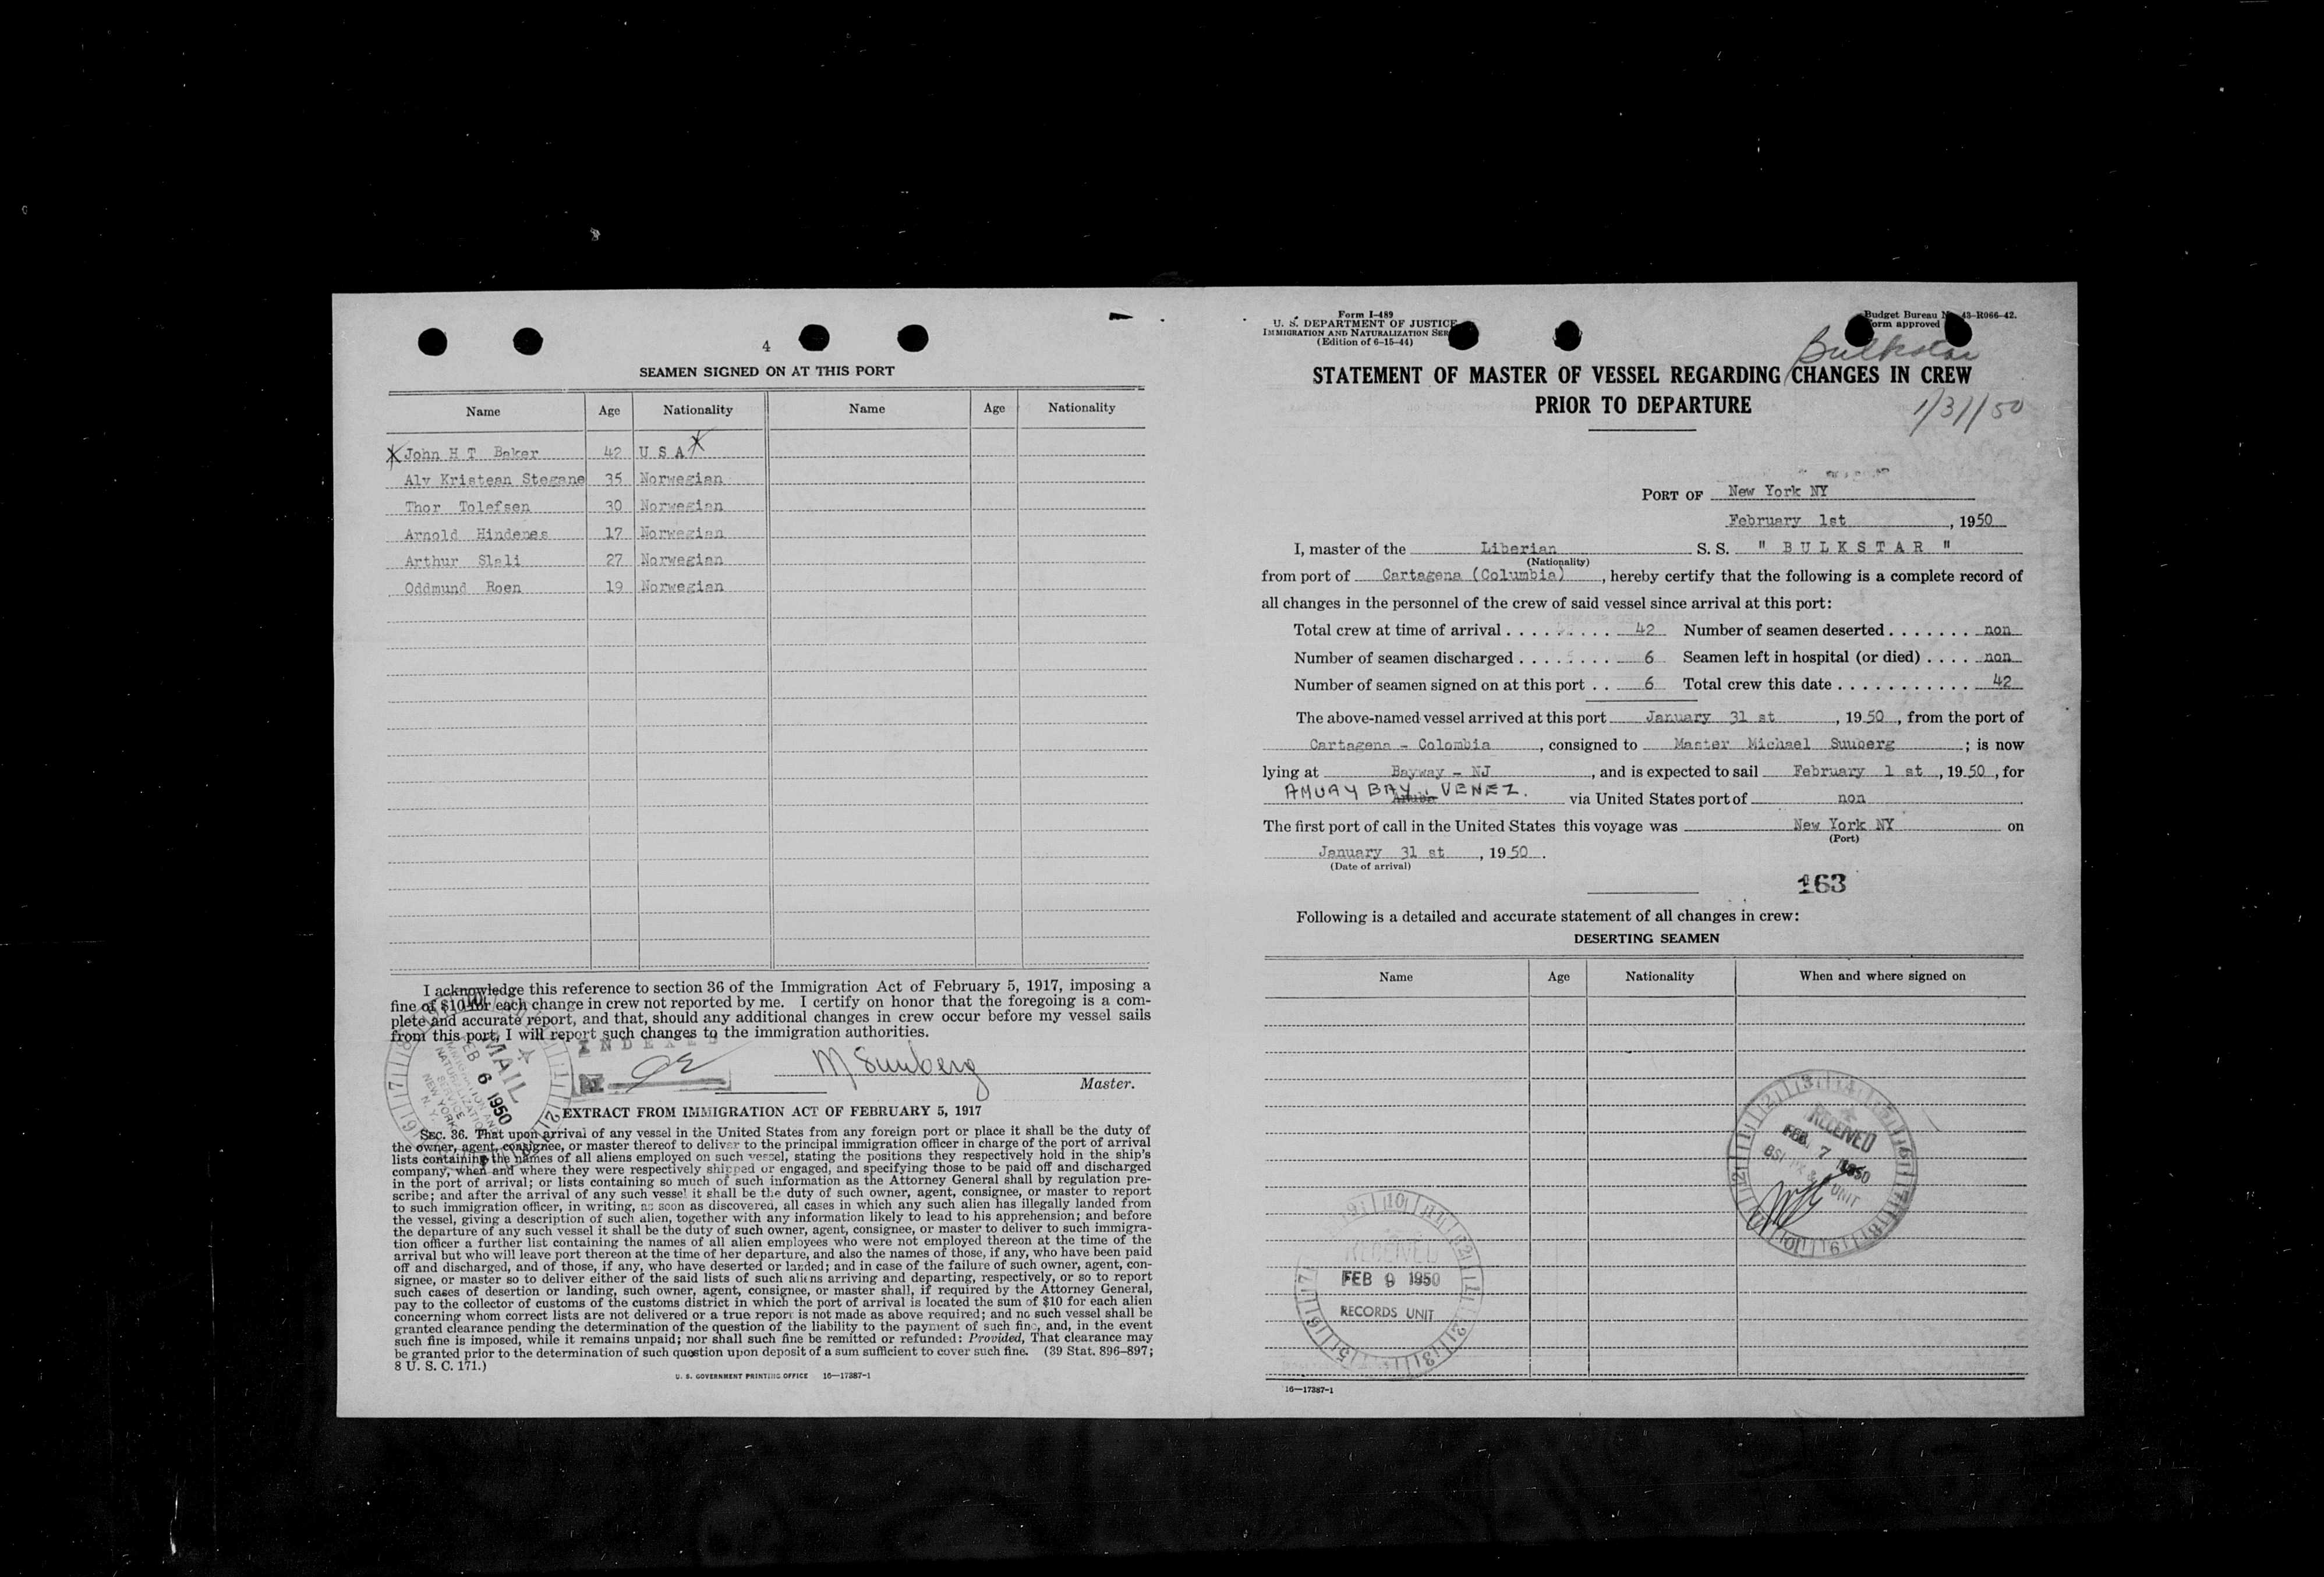 4
SEAMEN SIGNED ON AT THIS PORT
Name Age Nationality Name Age Nationality
X John H T Baker 42 U S A X
Alv Kristean Stegane 35 Norwegian
Thor Tolefsen 30 Norwegian
Arnold Hindenes 17 Norwegian
Arthur Slali 27 Norwegian
Oddmund Roen 19 Norwegian
I acknowledge this reference to section 36 of the Immigration Act of February 5, 1917, imposing a
fine of $10 for each change in crew not reported by me. I certify on honor that the foregoing is a com-
plete and accurate report, and that, should any additional changes in crew occur before my vessel sails
from this port, I will report such changes to the immigration authorities.
INDEXED
MAIL
FEB 6 1950
IMMIGRATION AND
NATURALIZATION
SERVICE
NEW YORK
N. Y.
M Suuberg
Master.
EXTRACT FROM IMMIGRATION ACT OF FEBRUARY 5, 1917
SEC. 36. That upon arrival of any vessel in the United States from any foreign port or place it shall be the duty of
the owner, agent, consignee, or master thereof to deliver to the principal immigration officer in charge of the port of arrival
lists containing the names of all aliens employed on such vessel, stating the positions they respectively hold in the ship's
company, when and where they were respectively shipped or engaged, and specifying those to be paid off and discharged
in the port of arrival; or lists containing so much of such information as the Attorney General shall by regulation pre-
scribe; and after the arrival of any such vessel it shall be the duty of such owner, agent, consignee, or master to report
to such immigration officer, in writing, as soon as discovered, all cases in which any such alien has illegally landed from
the vessel, giving a description of such alien, together with any information likely to lead to his apprehension; and before
the departure of any such vessel it shall be the duty of such owner, agent, consignee, or master to deliver to such immigra-
tion officer a further list containing the names of all alien employees who were not employed thereon at the time of the
arrival but who will leave port thereon at the time of her departure, and also the names of those, if any, who have been paid
off and discharged, and of those, if any, who have deserted or landed; and in case of the failure of such owner, agent, con-
signee, or master so to deliver either of the said lists of such aliens arriving and departing, respectively, or so to report
such cases of desertion or landing, such owner, agent, consignee, or master shall, if required by the Attorney General,
pay to the collector of customs of the customs district in which the port of arrival is located the sum of $10 for each alien
concerning whom correct lists are not delivered or a true report is not made as above required; and no such vessel shall be
granted clearance pending the determination of the question of the liability to the payment of such fine, and, in the event
such fine is imposed, while it remains unpaid; nor shall such fine be remitted or refunded: Provided, That clearance may
be granted prior to the determination of such question upon deposit of a sum sufficient to cover such fine. (39 Stat. 896-897;
8 U. S. C. 171.)
U. S. GOVERNMENT PRINTING OFFICE 16—17387-1
Form I-489
U. S. DEPARTMENT OF JUSTICE
IMMIGRATION AND NATURALIZATION SER
(Edition of 6-15-44)
Budget Bureau N 43-R066-42.
orm approved
Bulkstar
STATEMENT OF MASTER OF VESSEL REGARDING CHANGES IN CREW
PRIOR TO DEPARTURE
1/31/50
PORT OF New York NY
February 1st, 1950
I, master of the Liberian S. S. " B U L K S T A R "
(Nationality)
from port of Cartagena (Columbia), hereby certify that the following is a complete record of
all changes in the personnel of the crew of said vessel since arrival at this port:
Total crew at time of arrival . . . . . . . . 42 Number of seamen deserted . . . . . . . non
Number of seamen discharged . . . . . . . 6 Seamen left in hospital (or died) . . . . non
Number of seamen signed on at this port . . 6 Total crew this date . . . . . . . . . . . . 42
The above-named vessel arrived at this port January 31 st, 1950, from the port of
Cartagena - Colombia, consigned to Master Michael Suuberg; is now
lying at Bayway - NJ, and is expected to sail February 1 st, 1950, for
AMUAY BAY, VENEZ. Aruba via United States port of non
The first port of call in the United States this voyage was New York NY on
(Port)
January 31 st, 1950.
(Date of arrival)
163
Following is a detailed and accurate statement of all changes in crew:
DESERTING SEAMEN
Name Age Nationality When and where signed on
RECEIVED
FEB 7 1950
UNIT
RECEIVED
FEB 9 1950
RECORDS UNIT
16—17387-1